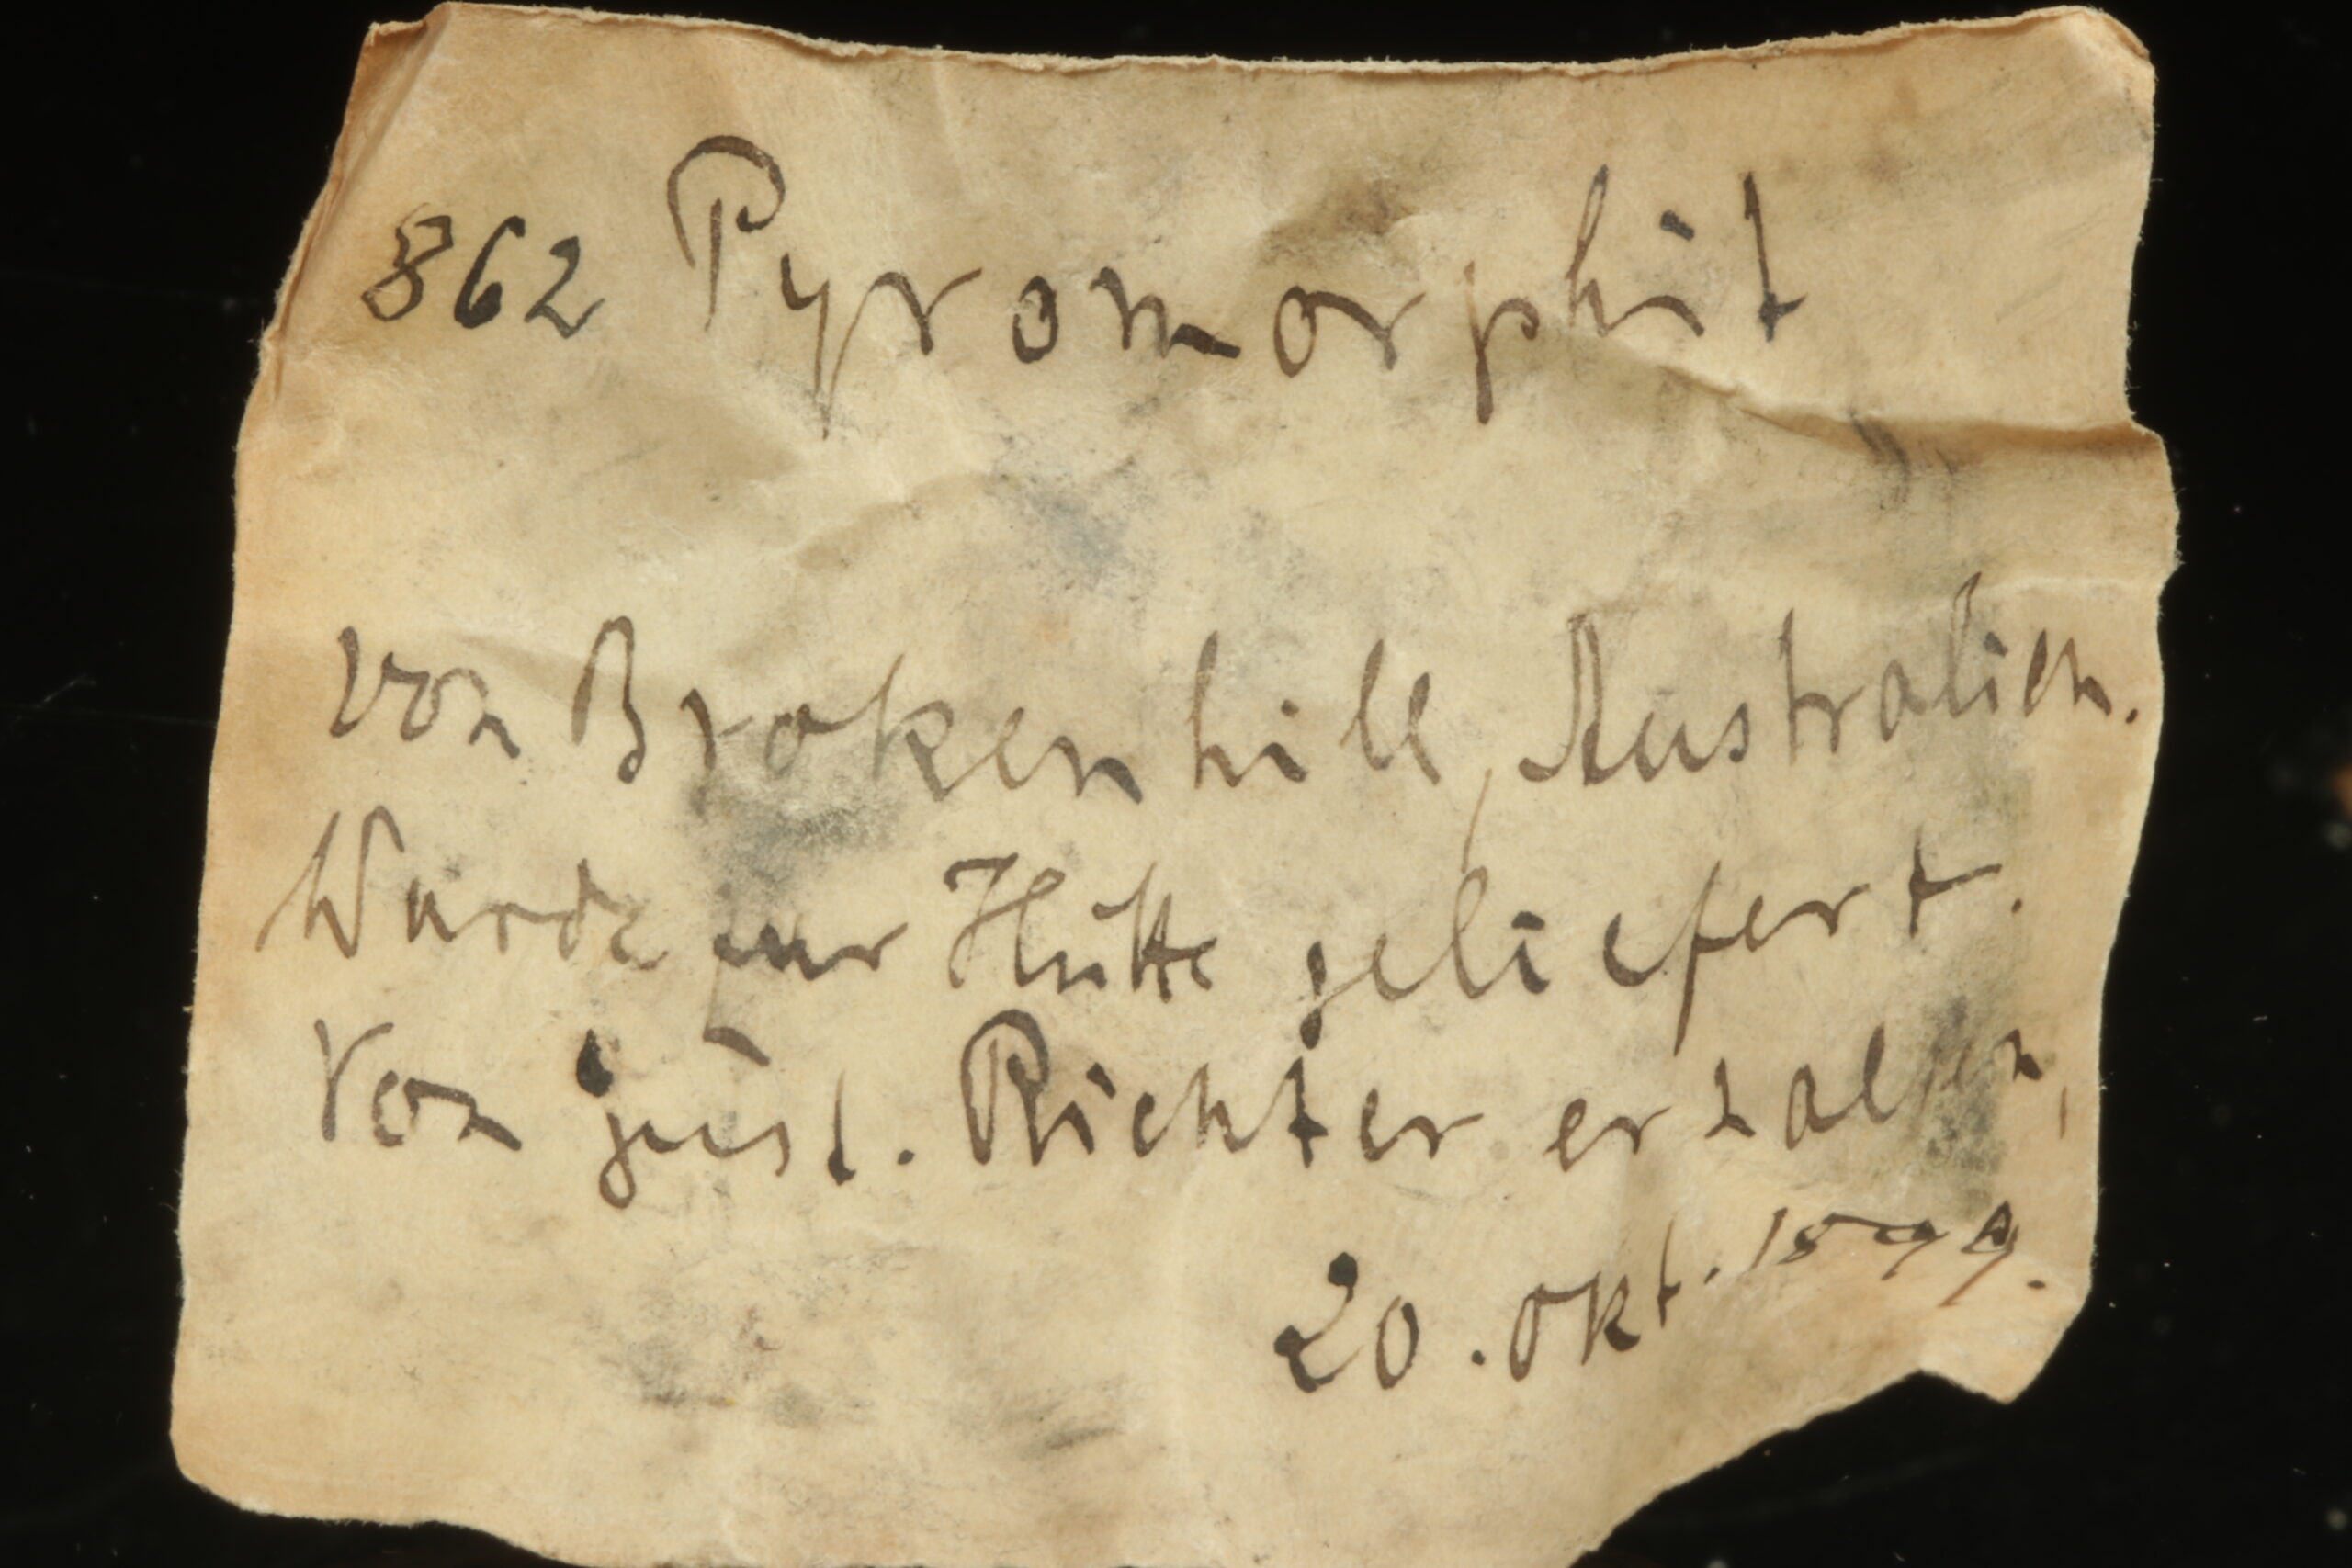 862 Pyromorphit
von Brokenhill, Australien.
Wurde zur Hütte geliefert.
Von Gust. Richter erhalten,
20. Okt. 1899.